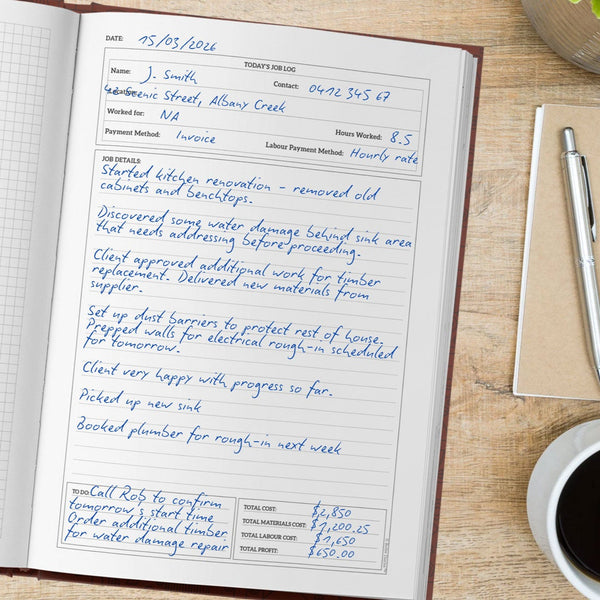 DATE: 15/03/2026
TODAY'S JOB LOG
Name: J. Smith Contact: 0412 345 67
Scenic Street, Albany Creek
Worked for: NA Hours Worked: 8.5
Payment Method: Invoice Labour Payment Method: Hourly rate
JOB DETAILS:
Started kitchen renovation - removed old
cabinets and benchtops.
Discovered some water damage behind sink area
that needs addressing before proceeding.
Client approved additional work for timber
replacement. Delivered new materials from
supplier.
Set up dust barriers to protect rest of house.
Prepped walls for electrical rough-in scheduled
for tomorrow.
Client very happy with progress so far.
Picked up new sink
Booked plumber for rough-in next week
TO DO: Call Rob to confirm
tomorrow s start time
Order additional timber
for water damage repair
TOTAL COST: $2,850
TOTAL MATERIALS COST: $1,200.25
TOTAL LABOUR COST: $1,650
TOTAL PROFIT: $650.00